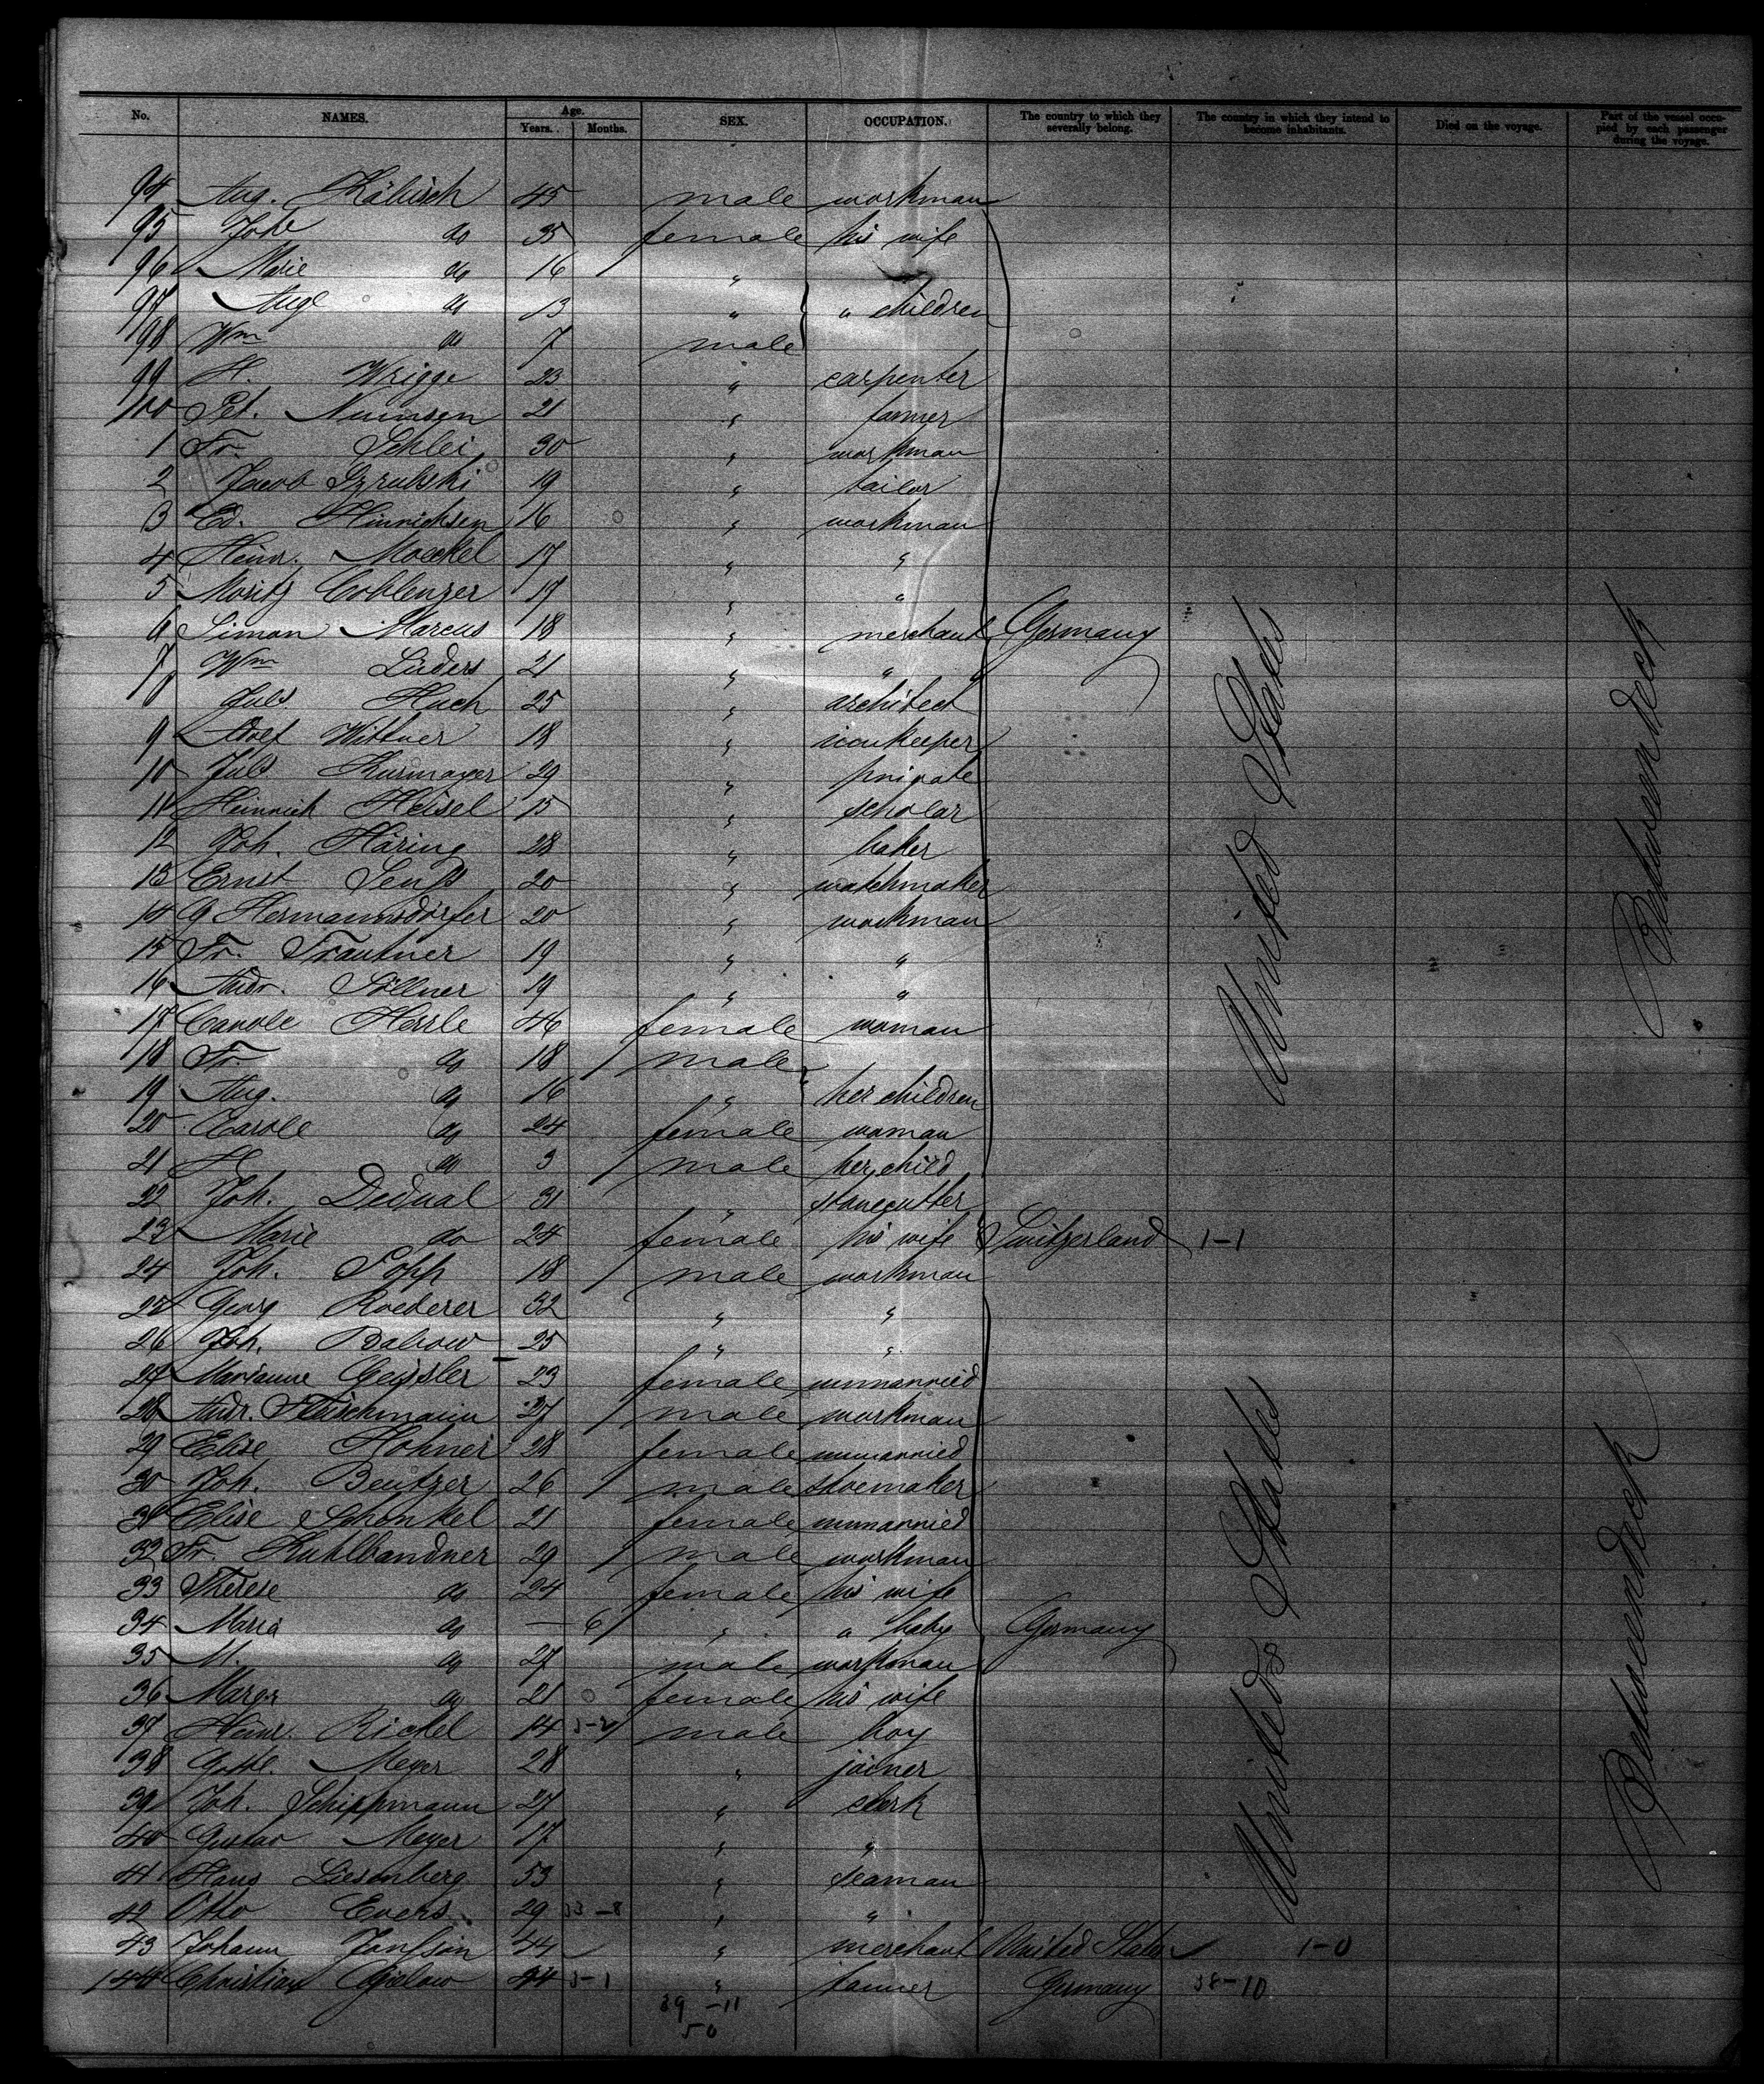 No. NAMES. Age. Years. Months. SEX. OCCUPATION. The country to which they severally belong. The country in which they intend to become inhabitants. Died on the voyage. Part of the vessel occupied by each passenger during the voyage.
94 Aug. Käbisch 45 male workman
95 Johe do 35 female his wife
96 Marie do 16 "
97 Auge do 13 " " children
98 Wm do 7 male
99 H. Wrigge 23 " carpenter
100 Pet. Numsen 21 " farmer
1 Fr. Schlei 30 " workman
2 Jacob Gzrubski 19 " tailor
3 Ed. Hinrichsen 16 " workman
4 Heinr. Moeckel 17 " "
5 Moritz Coblenzer 17 " "
6 Simon Marcus 18 " merchant Germany
7 Wm Lüders 21 " "
8 Juls Huch 25 " architect
9 Adolf Wittner 18 " innkeeper
10 Juls Kurmayer 29 " private
11 Heinrich Heisel 15 " scholar
12 Joh. Häring 28 " baker
13 Ernst Senft 20 " watchmaker
14 G Hermannsdörfer 20 " workman
15 Fr. Trautner 19 " "
16 Andr. Söllner 19 " "
17 Carole Herrle 46 female woman
18 Fr. do 18 male
19 Aug. do 16 " her children
20 Carole do 24 female woman
21 H do 3 male her child
22 Joh. Dedual 31 " stonecutter
23 Marie do 24 female his wife Switzerland 1-1
24 Joh. Popp 18 male workman
25 Georg Roederer 32 " "
26 Joh. Babow 25 " "
27 Marianne Geissler 23 female unmarried
28 Andr. Fleischmann 27 male workman
29 Elise Hohner 28 female unmarried
30 Joh. Beutzer 26 male shoemaker
31 Elise Schenkel 21 female unmarried
32 Fr. Kuhlbandner 29 male workman
33 Therese do 24 female his wife
34 Maria do — 6 " " baby Germany
35 M. do 27 male workman
36 Margr do 21 female his wife
37 Heinr. Rickel 14 male boy
38 Gottl. Meyer 28 " joiner
39 Joh. Schippmann 27 " clerk
40 Gustav Meyer 17 " "
41 Hans Liesenberg 53 " seaman
42 Otto Evers 29 33-8 " "
43 Johann Jonsson 44 " merchant United States 1-0
144 Christian Gielow 44 " tanner Germany 38-10
39-11
50
United States
United States
Betweendeck
Betweendeck